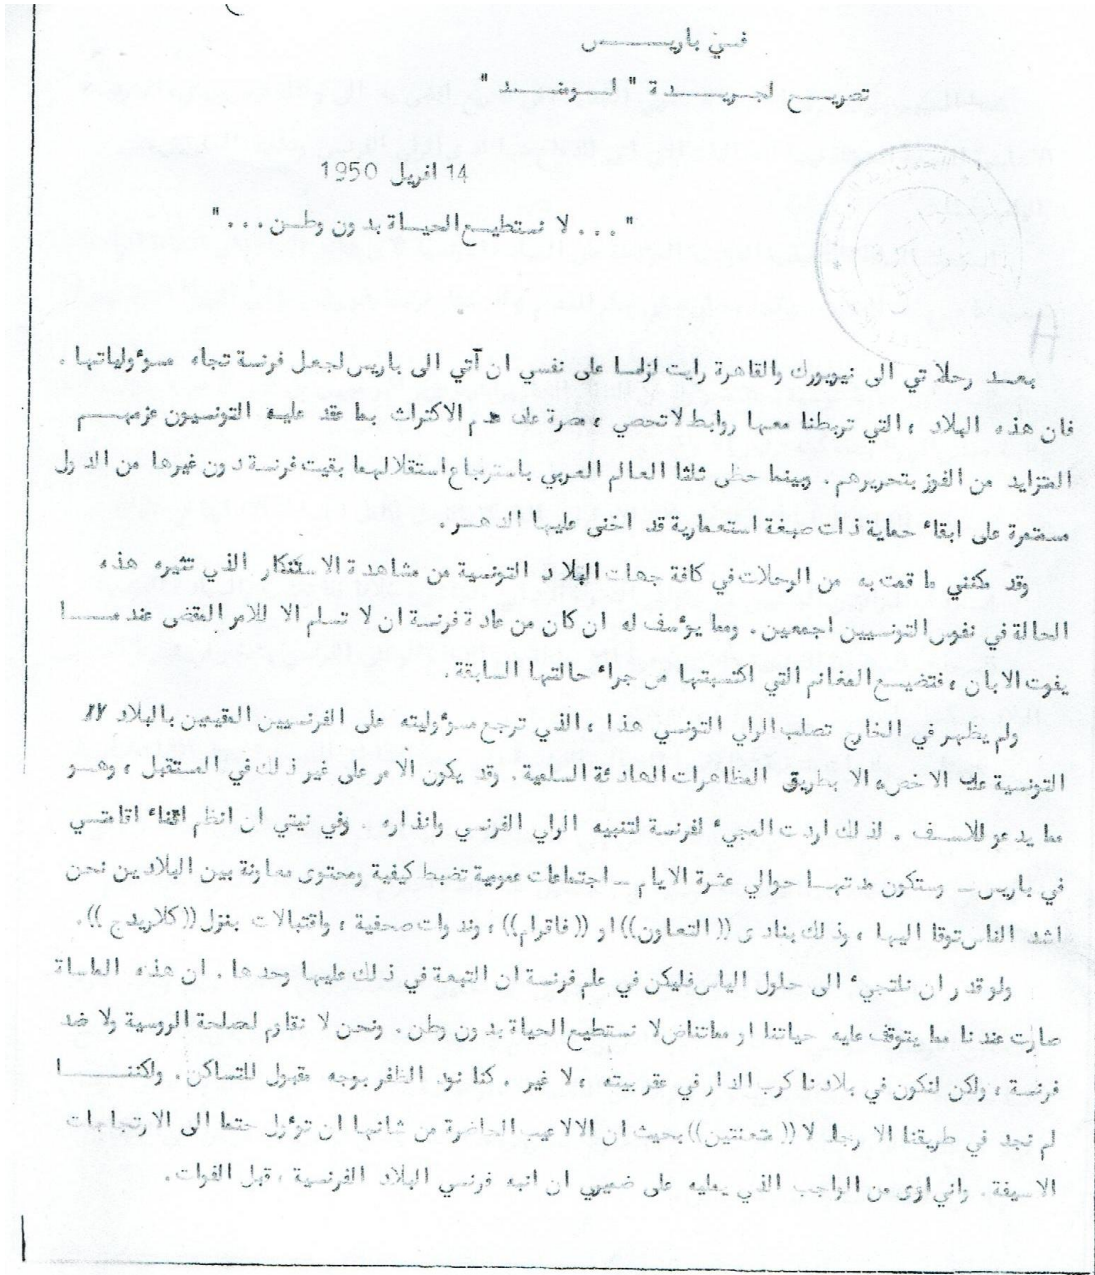 في باريس
تصريح لجريدة " لوموند "
14 افريل 1950
" ... لا نستطيع الحياة بدون وطن ... "
بعد رحلاتي الى نيويورك والقاهرة رايت لزاما على نفسي ان آتي الى باريس لجعل فرنسة تجاه مسؤولياتها .
فان هذه البلاد ، التي تربطنا معها روابط لاتحصي ، مصرة على عدم الاكتراث بما عقد عليه التونسيون عزمهم
المتزايد من الفوز بتحريرهم . وبينما حظى ثلثا العالم العربي باسترجاع استقلالهما بقيت فرنسة دون غيرها من الدول
مستمرة على ابقاء حماية ذات صبغة استعمارية قد اخنى عليها الدهر .
وقد مكنني ما قمت به من الرحلات في كافة جهات البلاد التونسية من مشاهدة الاستنكار الذي تثيره هذه
الحالة في نفوس التونسيين اجمعين . ومما يؤسف له ان كان من عادة فرنسة ان لا تسلم الا للامر المقضى عندما
يفوت الابان ، فتضيع المغانم التي اكتسبتها من جراء حالتها السابقة .
ولم يظهر في الخارج تصلب الراي التونسي هذا ، الذي ترجع مسؤوليته على الفرنسيين المقيمين بالبلاد
التونسية على الاخص الا بطريق المظاهرات الهادئة السلمية . وقد يكون الامر على غير ذلك في المستقبل ، وهو
مما يدعو للاسف . لذلك اردت المجيء لفرنسة لتنبيه الراي الفرنسي وانذاره . وفي نيتي ان انظم اثناء اقامتي
في باريس _ وستكون مدتها حوالي عشرة الايام _ اجتماعات عمومية تضبط كيفية ومحتوى معاونة بين البلادين نحن
اشد الناس توقا اليها ، وذلك بنادى (( التعاون )) او (( فاقرام )) ، وندوات صحفية ، واقتبالات بنزل (( كلاريدج )) .
ولو قدر ان نلتجيء الى حلول الياس فليكن في علم فرنسة ان التبعة في ذلك عليها وحدها . ان هذه الماساة
صارت عندنا مما يتوقف عليه حياتنا او مماتنا لا نستطيع الحياة بدون وطن . ونحن لا نقاوم لصلحة الروسية ولا ضد
فرنسة ، ولكن لنكون في بلادنا كرب الدار في عقر بيته ، لا غير . كنا نود الظفر بوجه مقبول للتساكن . ولكننا
لم نجد في طريقنا الا رجالا (( متعنتين )) بحيث ان الالاعيب الحاضرة من شانها ان تؤول حتما الى الارتجاجات
الاسيفة . واني اوى من الواجب الذي يمليه على ضميري ان انبه فرنسي البلاد الفرنسية ، قبل الفوات .